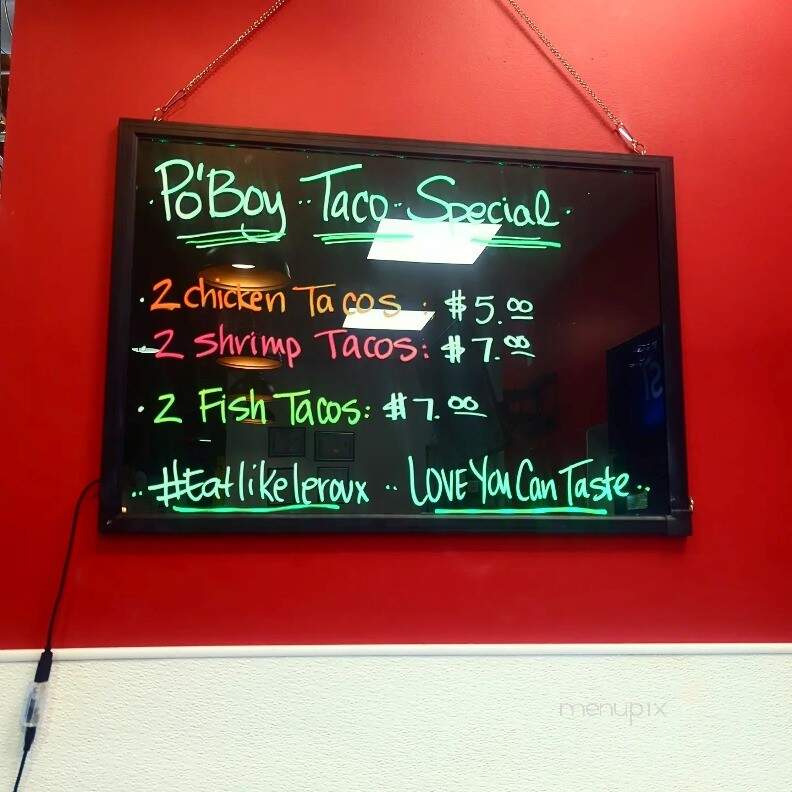 · Po'Boy ·· Taco ·· Special ·
· 2 chicken Tacos : $5.00
- 2 shrimp Tacos: $7.00
· 2 Fish Tacos: $7.00
·· #Eatlikeleroux ·· LOVE You Can Taste ··
menupix